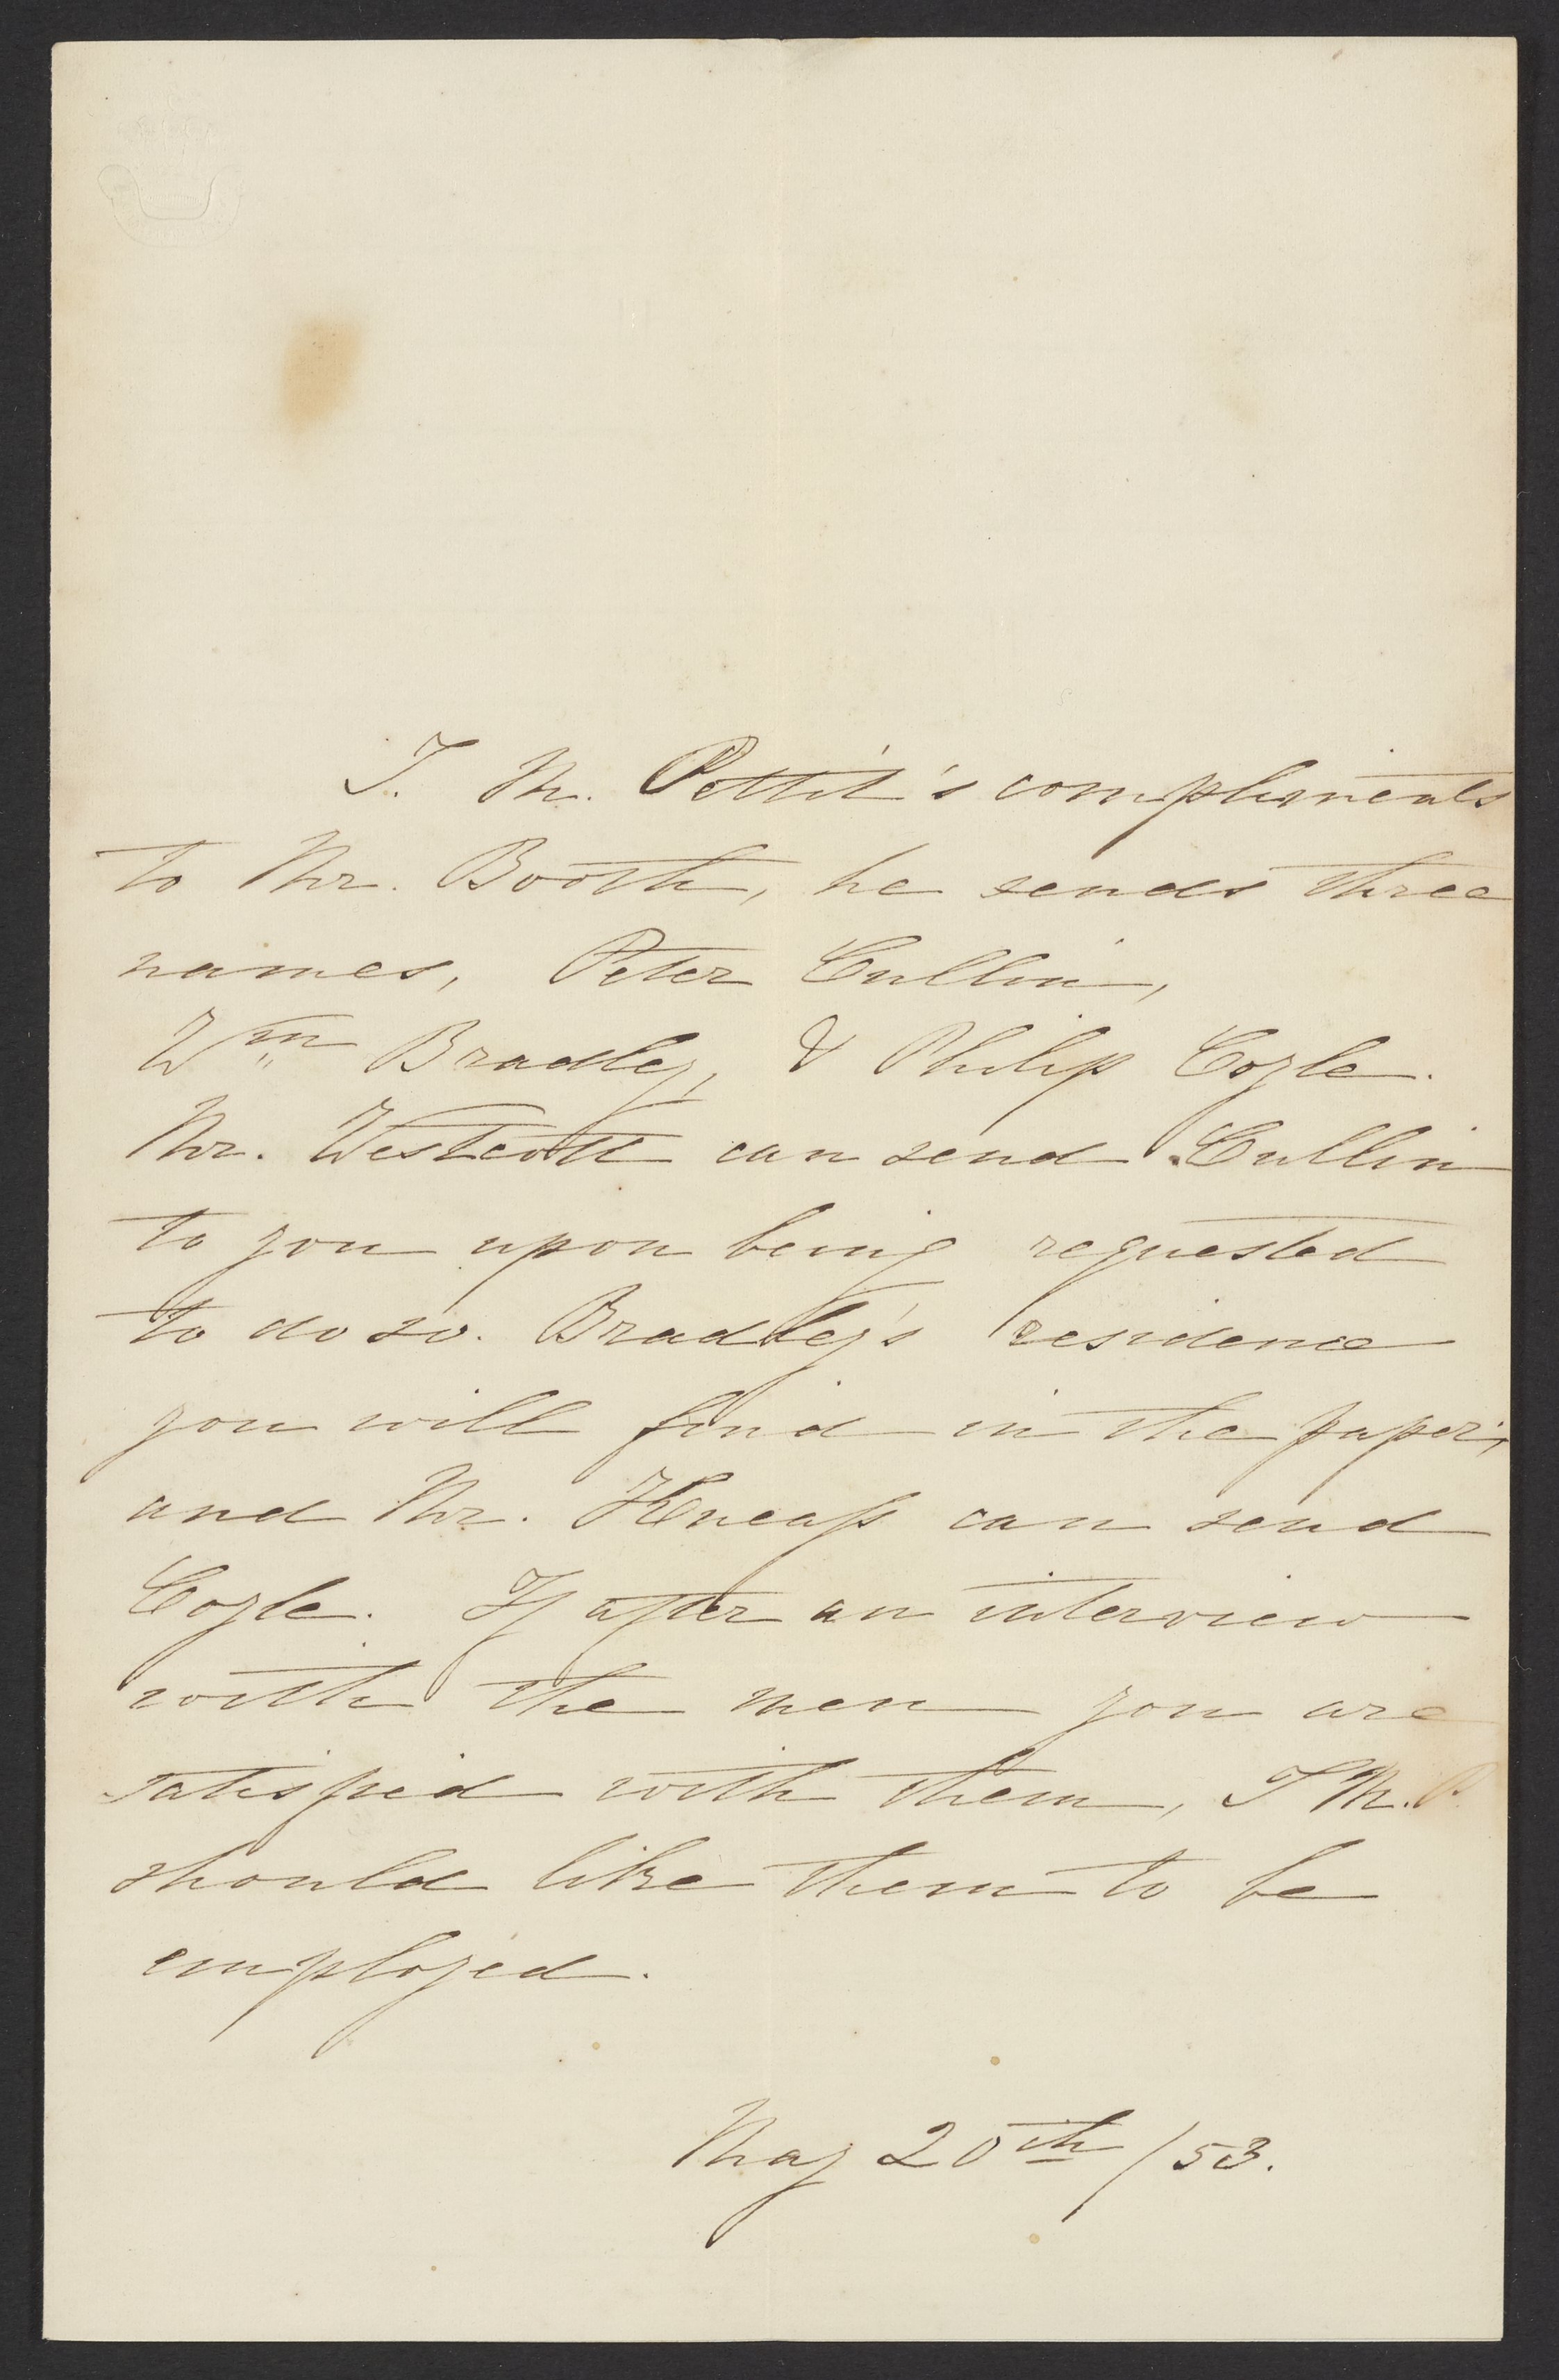 T. M. Pettit's compliments
to Mr. Booth, he sends three
names, Peter Cullin,
Wm Bradley, & Philip Coyle.
Mr. Westcott can send Cullin
to you upon being requested
to do so. Bradley's residence
you will find in the paper,
and Mr. Kneass can send
Coyle. If after an interview
with the men you are
satisfied with them, T M. P.
should like them to be
employed.
May 20th / 53.